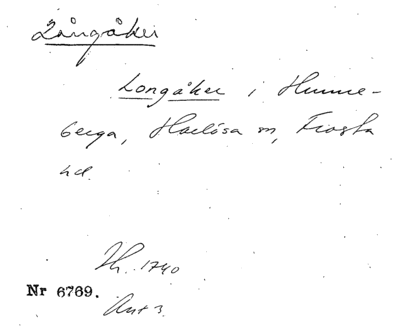 Långåker
Longåker i Hunne-
berga, Harlösa sn, Frosta
hd.
Jb. 1740
Nr 6769.
Ant 3.